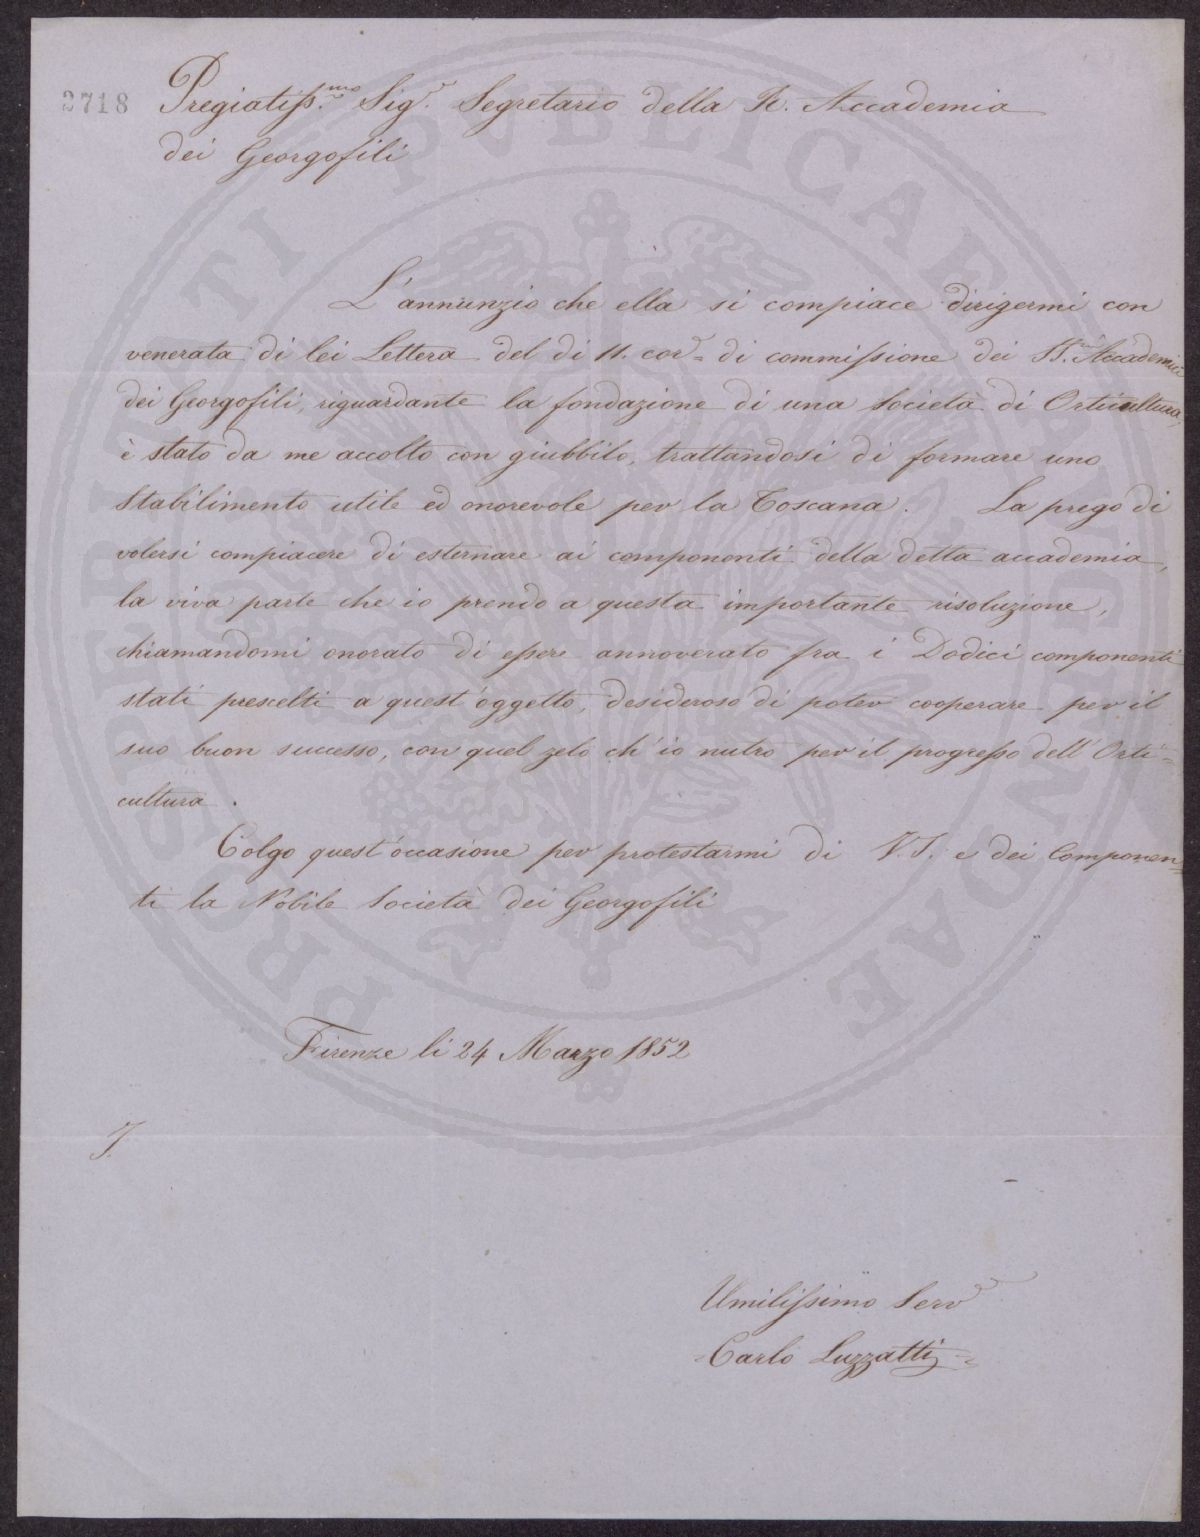 2718
Pregiatiss.mo Sig.r Segretario della R. Accademia
dei Georgofili
L'annunzio che ella si compiace dirigermi con
venerata di lei Lettera del di 11. corr= di commissione dei SS.ri Accademici
dei Georgofili, riguardante la fondazione di una Società di Orticultura,
è stato da me accolto con giubbilo, trattandosi di formare uno
Stabilimento utile ed onorevole per la Toscana. La prego di
volersi compiacere di esternare ai componenti della detta accademia,
la viva parte che io prendo a questa importante risoluzione,
chiamandomi onorato di essere annoverato fra i Dodici componenti
stati prescelti a quest'oggetto, desideroso di poter cooperare per il
suo buon successo, con quel zelo ch'io nutro per il progresso dell'Orti=
cultura.
Colgo quest'occasione per protestarmi di V.S. e dei Componen=
ti la Nobile Società dei Georgofili
Firenze li 24 Marzo 1852
Umilissimo Serv.
=Carlo Luzzatti=
PROSPERITATI PUBLICAE AUGENDAE